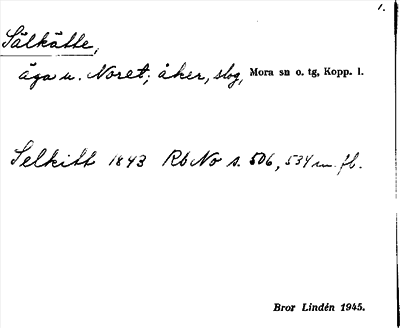 1.
Sälkätte,
äga u. Noret; åker, slog, Mora sn o. tg, Kopp. l.
Selkitt 1843 Rb No s. 506, 534 m. fl.
Bror Lindén 1945.